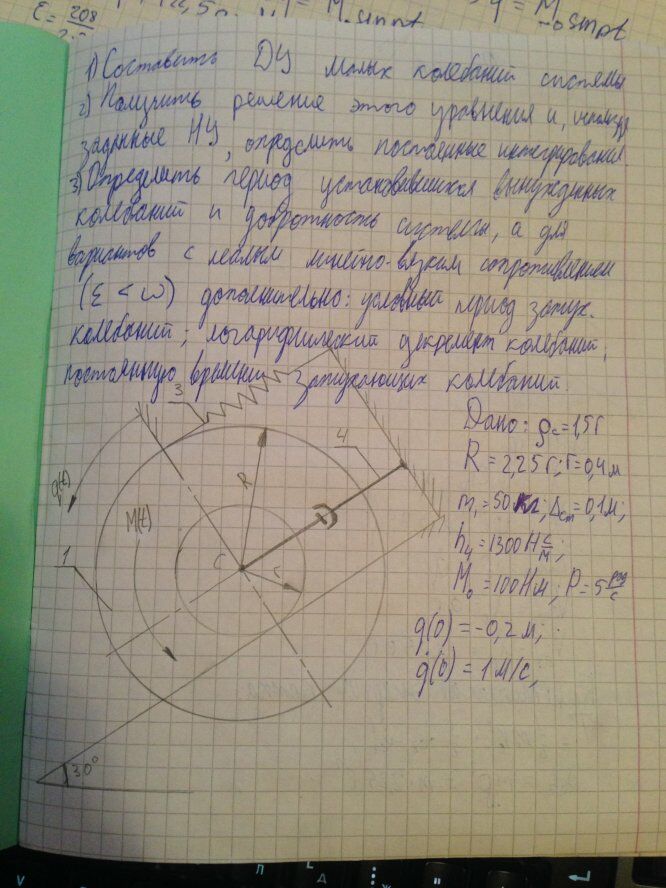 ε = 208
1) Составить ДУ малых колебаний системы
2) Получить решение этого уравнения и, используя
заданные НУ, определить постоянные интегрирования.
3) Определить период установившихся вынужденных
колебаний и добротность системы, а для
вариантов с малым линейно-вязким сопротивлением
(ε < ω) дополнительно: условный период затух.
колебаний; логарифмический декремент колебаний;
постоянную времени затухающих колебаний.
Дано: ρc = 1,5r
R = 2,25r; r = 0,4 м
m1 = 50 кг; Δст = 0,1 м;
h4 = 1300 Н с/м;
M0 = 100 Нм; P = 5 рад/с
q(0) = -0,2 м;
q̇(0) = 1 м/с;
3
4
R
q(t)
M(t)
1
C
r
30°